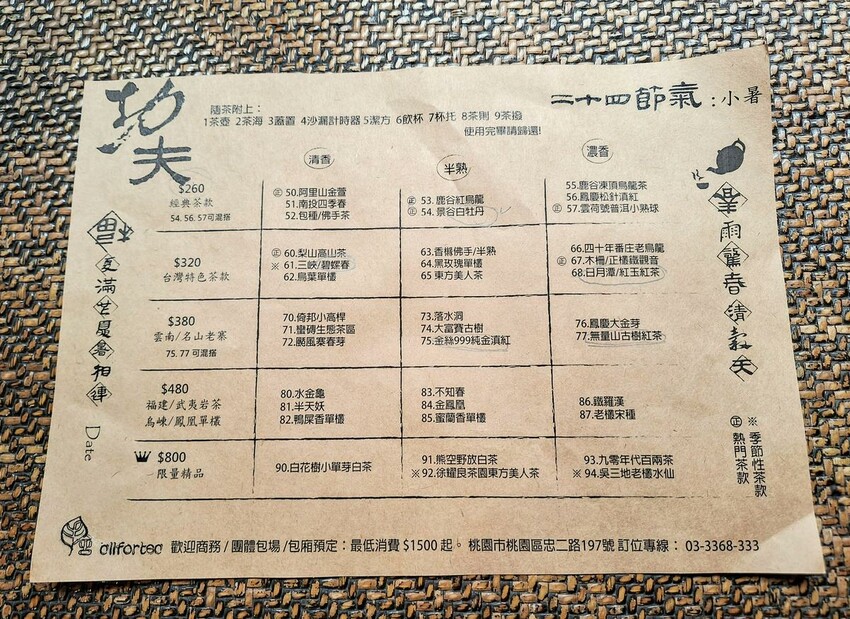 功夫
隨茶附上：
1茶壺 2茶海 3蓋置 4沙漏計時器 5潔方 6飲杯 7杯托 8茶則 9茶擓
使用完畢請歸還!
二十四節氣：小暑
清香
半熟
濃香
$260
經典茶款
54. 56. 57可混搭
㊣ 50.阿里山金萱
51.南投四季春
52.包種/佛手茶
㊣ 53. 鹿谷紅烏龍
㊣ 54. 景谷白牡丹
55.鹿谷凍頂烏龍茶
56.鳳慶松針滇紅
㊣ 57.雲荷號普洱小熟球
$320
台灣特色茶款
㊣ 60.梨山高山茶
※ 61.三峽/碧螺春
62.烏葉單欉
63.香櫞佛手/半熟
64.黑玫瑰單欉
65.東方美人茶
66.四十年番庄老烏龍
㊣ 67.木柵/正欉鐵觀音
68.日月潭/紅玉紅茶
$380
雲南/名山老寨
75. 77 可混搭
70.倚邦小高桿
71.蠻磚生態茶區
72.颳風寨春芽
73.落水洞
74.大富賽古樹
75.金絲999純金滇紅
76.鳳慶大金芽
77.無量山古樹紅茶
$480
福建/武夷岩茶
烏崠/鳳凰單欉
80.水金龜
81.半天妖
82.鴨屎香單欉
83.不知春
84.金鳳凰
85.蜜蘭香單欉
86.鐵羅漢
87.老欉宋種
$800
限量精品
90.白花樹小單芽白茶
91.熊空野放白茶
※ 92.徐耀良茶園東方美人茶
93.九零年代百兩茶
※ 94.吳三地老欉水仙
夏滿芒夏暑相連
春雨驚春清穀天
Date
※ 季節性茶款
㊣ 熱門茶款
allfortea 歡迎商務 / 團體包場 /包廂預定：最低消費 $1500 起。 桃園市桃園區忠二路197號 訂位專線： 03-3368-333